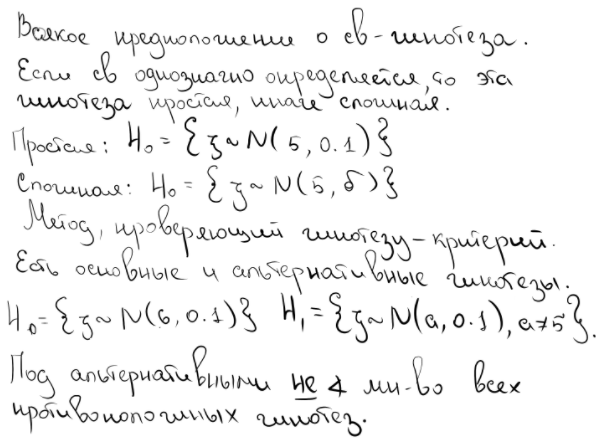 Всякое предположение о св-гипотеза.
Если св однозначно определяется, то эта
гипотеза простая, иначе сложная.
Простая: H₀ = {ξ ~ N(5, 0.1)}
Сложная: H₀ = {ξ ~ N(5, δ)}
Метод, проверяющий гипотезу – критерий.
Есть основные и альтернативные гипотезы.
H₀ = {ξ ~ N(6, 0.1)} H₁ = {ξ ~ N(a, 0.1), a≠5}.
Под альтернативными не ∢ мн-во всех
противоположных гипотез.